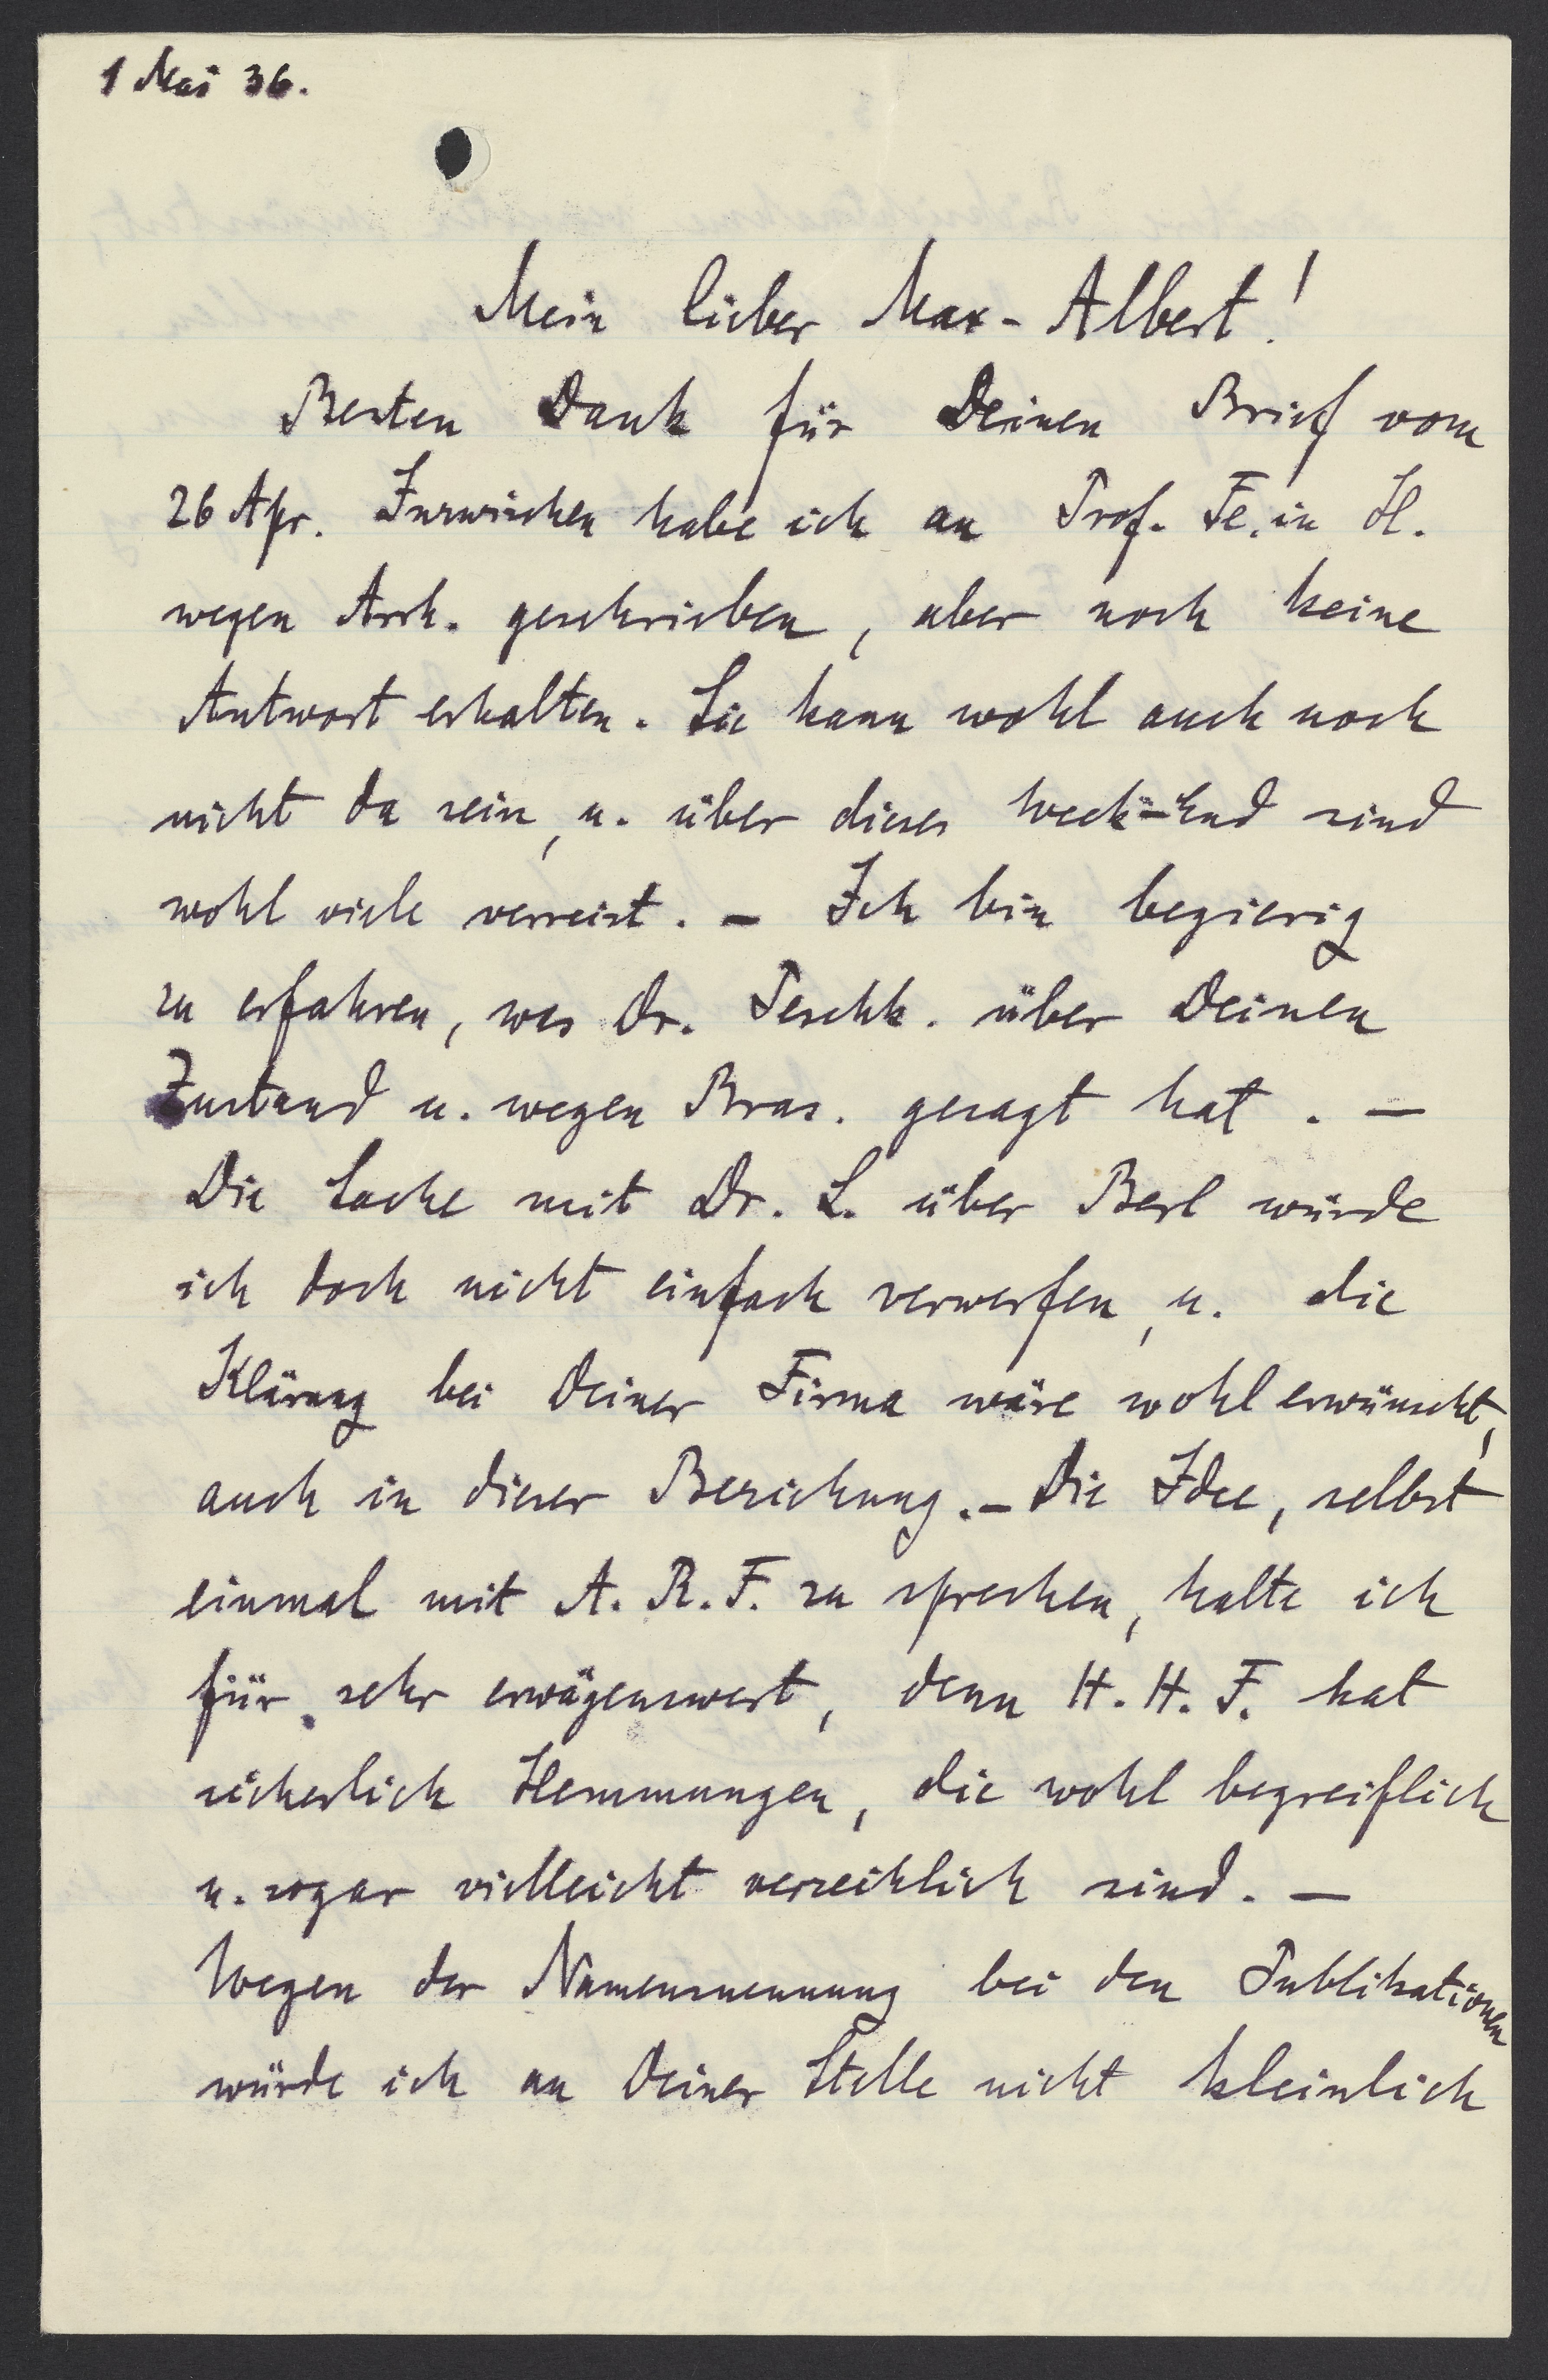 1 Mai 36.
Mein lieber Max-Albert!
Besten Dank für Deinen Brief vom
26 Apr. Inzwischen habe ich an Prof. Fe. in H.
wegen Arch. geschrieben, aber noch keine
Antwort erhalten. Sie kann wohl auch noch
nicht da sein, u. über dieses Week-End sind
wohl viele verreist. – Ich bin begierig
zu erfahren, was Dr. Peschk. über Deinen
Zustand u. wegen Bras. gesagt hat. –
Die Sache mit Dr. L. über Berl würde
ich doch nicht einfach verwerfen, u. die
Klärung bei Deiner Firma wäre wohl erwünscht,
auch in dieser Beziehung. – Die Idee, selbst
einmal mit A. R. F. zu sprechen, halte ich
für sehr erwägenswert, denn H. H. F. hat
sicherlich Hemmungen, die wohl begreiflich
u. sogar vielleicht verzeihlich sind. –
Wegen der Namensnennung bei den Publikationen
würde ich an Deiner Stelle nicht kleinlich